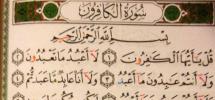 سُورَةُ الْكَافِرُونَ
بِسْمِ اللَّهِ الرَّحْمَٰنِ الرَّحِيمِ
قُلْ يَٰٓأَيُّهَا الْكَٰفِرُونَ ۝١ لَآ أَعْبُدُ مَا تَعْبُدُونَ ۝٢
وَلَآ أَنتُمْ عَٰبِدُونَ مَآ أَعْبُدُ ۝٣ وَلَآ أَنَا۠ عَابِدٌ مَّا عَبَدتُّمْ ۝٤